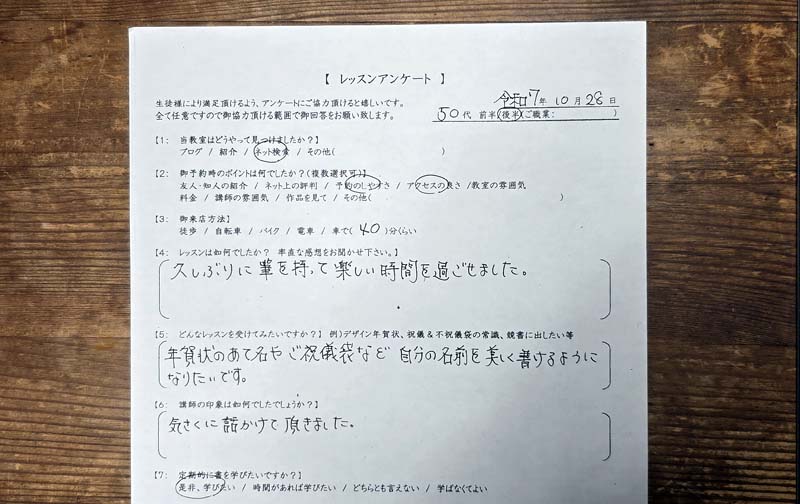 【 レッスンアンケート 】
生徒様により満足頂けるよう、アンケートにご協力頂けると嬉しいです。
令和7年 10月 28日
全て任意ですので御協力頂ける範囲で御回答をお願い致します。
50代 前半/後半(ご職業: )
【1: 当教室はどうやって見つけましたか?】
ブログ / 紹介 / ネット検索 / その他( )
【2: 御予約時のポイントは何でしたか?(複数選択可)】
友人・知人の紹介 / ネット上の評判 / 予約のしやすさ / アクセスの良さ /教室の雰囲気
料金 / 講師の雰囲気 / 作品を見て / その他( )
【3: 御来店方法】
徒歩 / 自転車 / バイク / 電車 / 車で( 40 )分くらい
【4: レッスンは如何でしたか? 率直な感想をお聞かせ下さい。】
久しぶりに筆を持って楽しい時間を過ごせました。
【5: どんなレッスンを受けてみたいですか? 例)デザイン年賀状、祝儀&不祝儀袋の常識、競書に出したい等
年賀状のあて名やご祝儀袋など 自分の名前を美しく書けるように
なりたいです。
【6: 講師の印象は如何でしたでしょうか?】
気さくに話かけて頂きました。
【7: 定期的に書を学びたいですか?】
是非、学びたい / 時間があれば学びたい / どちらとも言えない / 学ばなくてよい